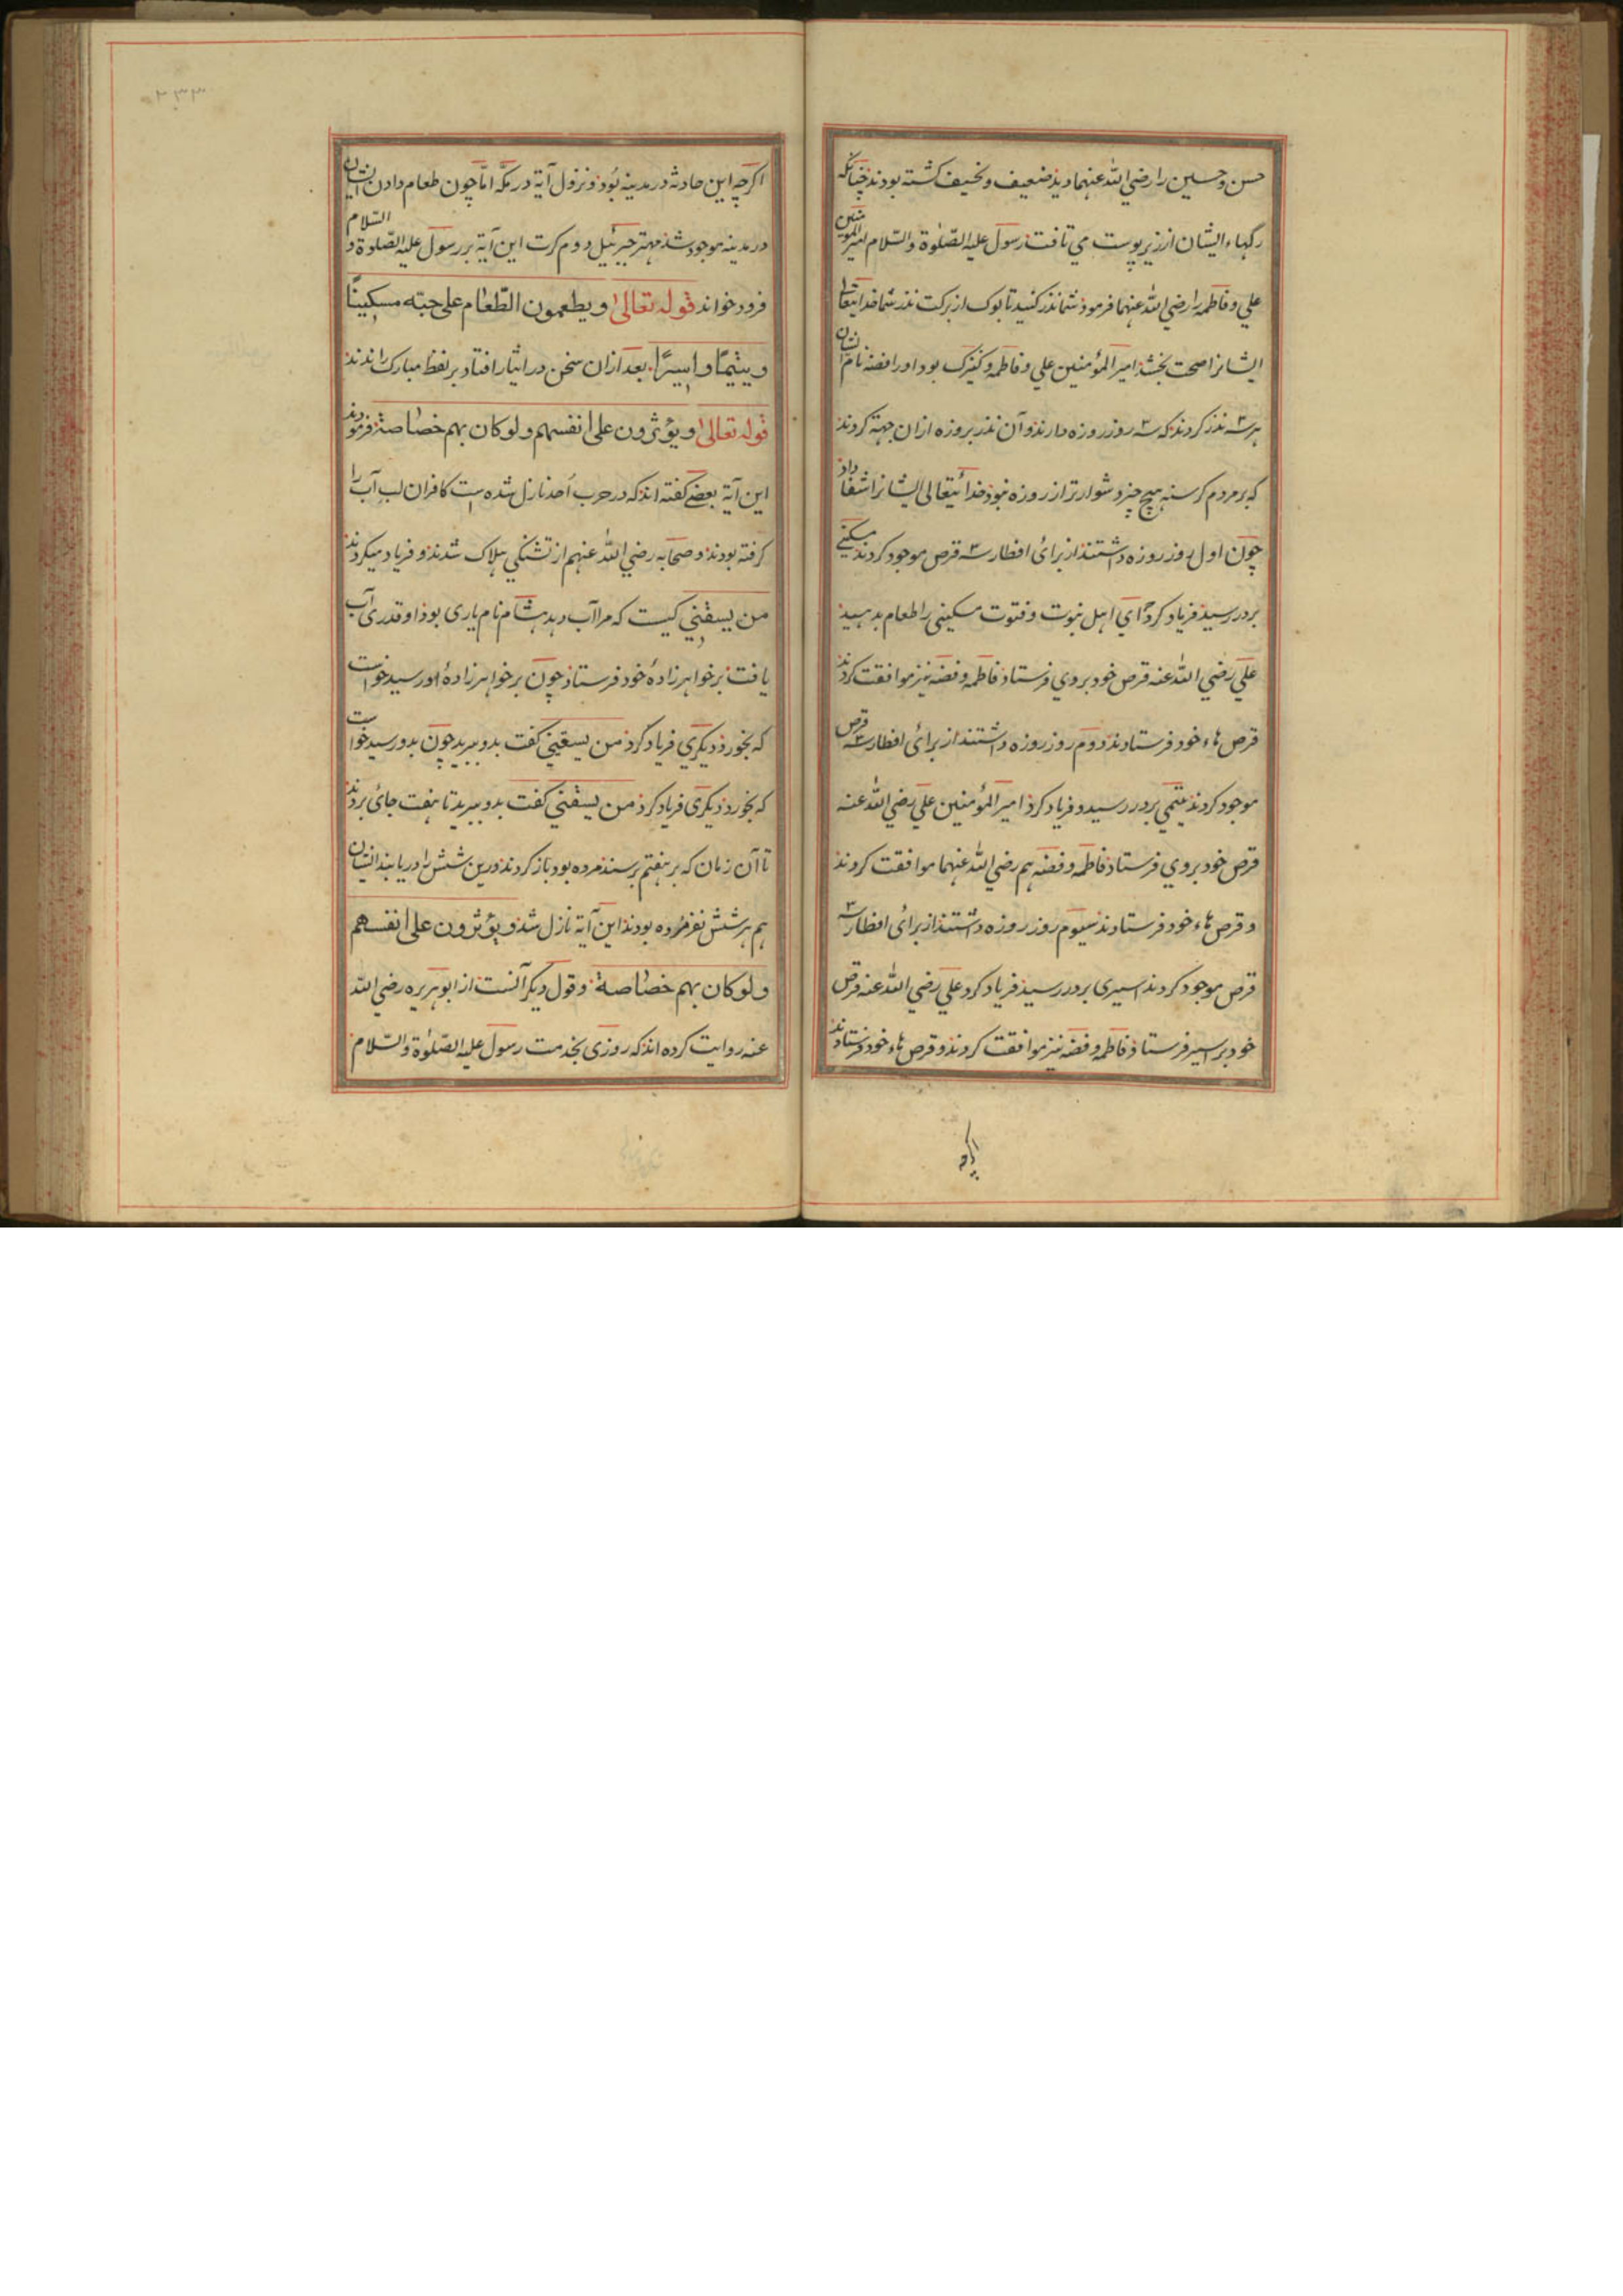 حسن و حسین را رضی الله عنهما دید ضعیف و نحیف کشته بودند چنانکه
رکهاء ایشان از زیر پوست می تافت رسول علیه الصلوة والسلام امیر المؤمنین
علی و فاطمه را رضی الله عنهما فرمود شما نذر کنید تا بوک از برکت نذر شما خدایتعالی
ایشانرا صحت بخشد امیر المؤمنین علی و فاطمه و کنیزک بود او را فضه نام ایشان
هر سه نذر کردند که سه روز روزه دارند و آن نذر بروزه ازان جهة کردند
که بر مردم کرسنه هیچ چیز دشوارتر از روزه نبود خدائیتعالی ایشانرا شفا داد
چون اول روز روزه داشتند از برای افطار سه قرص موجود کردند مسکینی
بر در رسید فریاد کرد ای اهل نبوت و فتوت مسکینی را طعام بدهید
علی رضی الله عنه قرص خود بروی فرستاد فاطمه و فضه نیز موافقت کردند
قرص هاء خود فرستادند دوم روز روزه داشتند از برای افطار سه قرص
موجود کردند یتیمی بر در رسید و فریاد کرد امیر المؤمنین علی رضی الله عنه
قرص خود بروی فرستاد فاطمه و فضه هم رضی الله عنهما موافقت کردند
و قرص هاء خود فرستادند سیوم روز روزه داشتند از برای افطار سه
قرص موجود کردند اسیری بر در رسید فریاد کرد علی رضی الله عنه قرص
خود بر اسیر فرستاد فاطمه و فضه نیز موافقت کردند و قرص هاء خود فرستادند
اکرچه
۲۳۳
اکرچه این حادثه در مدینه بود و نزول آیة در مکه اما چون طعام دادن ایشان
در مدینه موجود شد مهتر جبرئیل دوم کرت این آیة بر رسول علیه الصلوة و السلام
فرود خواند قوله تعالی ویطعمون الطعام علی حبه مسکینا
ویتیما واسیرا بعد ازان سخن در ایثار افتاد بر لفظ مبارک راندند
قوله تعالی ویؤثرون علی انفسهم ولو کان بهم خصاصة فرمودند
این آیة بعضی کفته اند که در حرب احد نازل شده است کافران لب آب را
کرفته بودند و صحابه رضی الله عنهم از تشنکی هلاک شدند و فریاد میکردند
من یسقنی کیست که مرا آب دهد هشام نام یاری بود او قدری آب
یافت بر خواهرزادهٔ خود فرستاد چون بر خواهرزادهٔ او رسید خواست
که بخورد دیکری فریاد کرد من یسقینی کفت بدو ببرید چون بدو رسید خواست
که بخورد دیکری فریاد کرد من یسقنی کفت بدو ببرید تا هفت جای بردند
تا آن زمان که بر هفتم برسند مرده بود باز کردند و رین شش را دریابند ایشان
هم هر شش نفر مرده بودند این آیة نازل شد ویؤثرون علی انفسهم
ولو کان بهم خصاصة وقول دیکر آنست از ابو هریره رضی الله
عنه روایت کرده اند که روزی بخدمت رسول علیه الصلوة والسلام